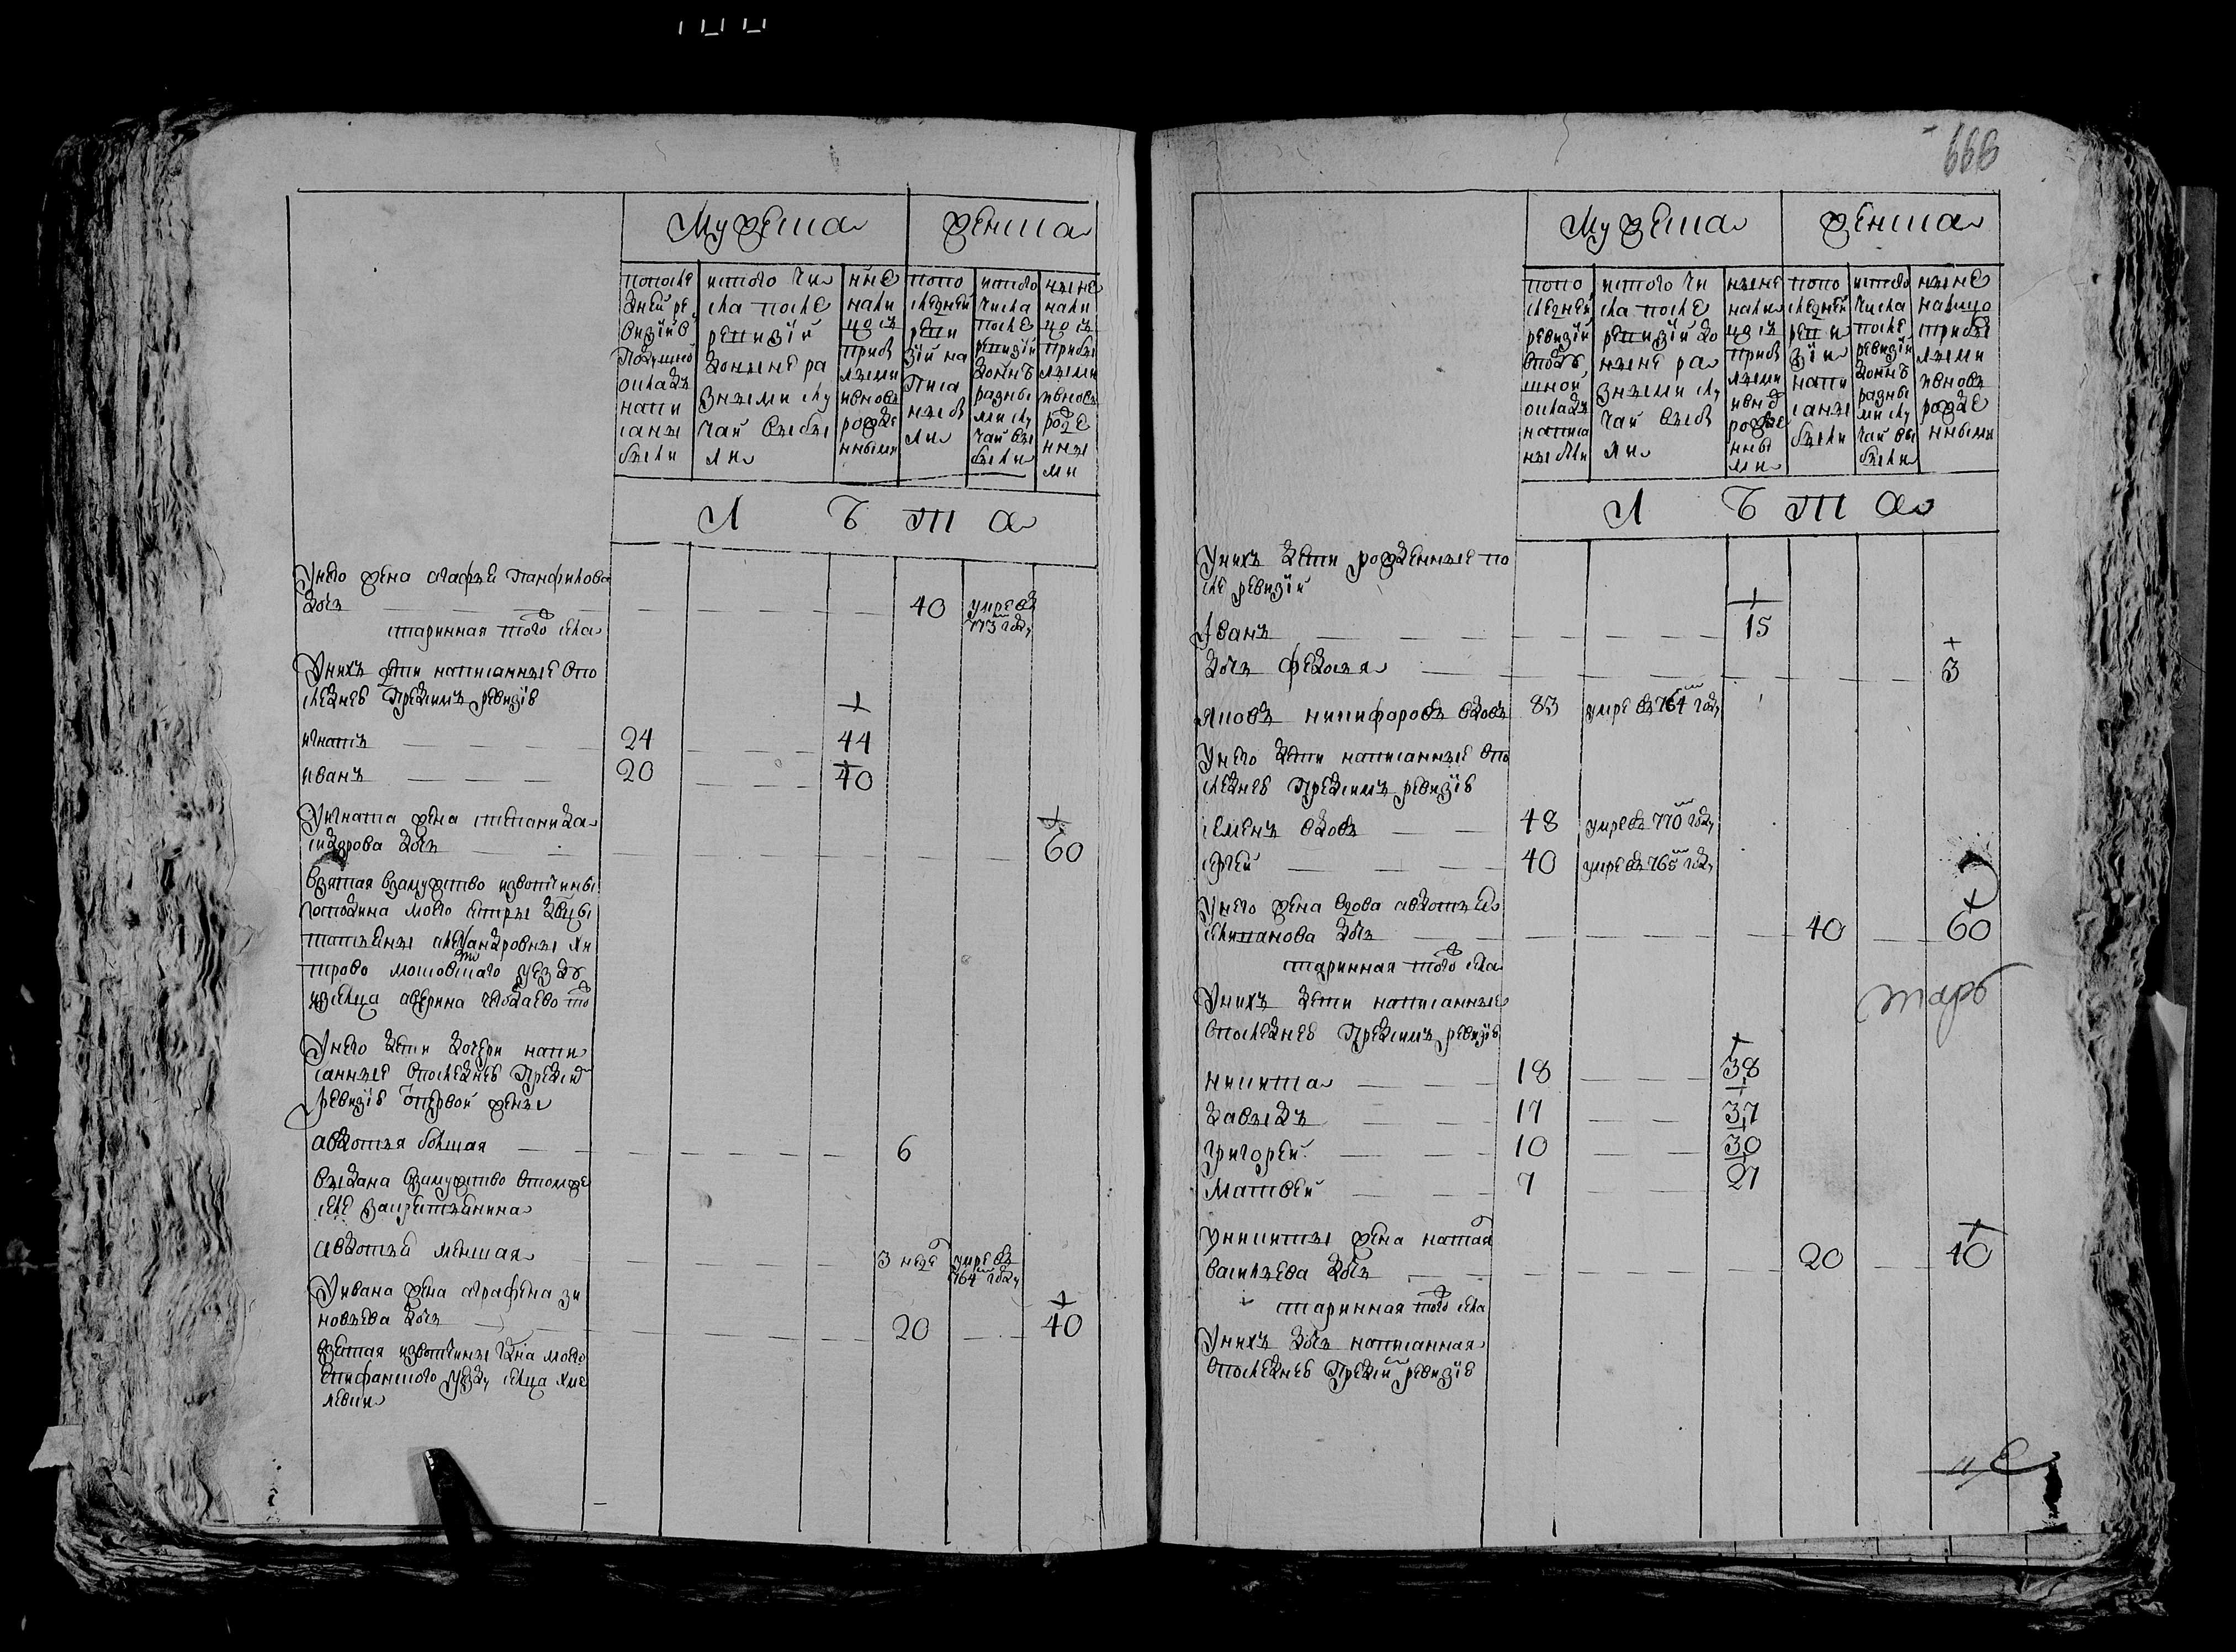 Мужеска
женска
попосле
дней ре
визій в
Подушно
окладъ
напи
саны
были
истого чи
сла после
ревизіи
доныне ра
зными слу
чаи выбы
ли
ныне
нали
цо съ
прибы
лыми
ивновь
рожде
нными
попо
следней
реви
зіи на
писа
ны бы
ли
истого
числа
после
ревизіи
доннѣ
разны
ми слу
чаи вы
были
ныне
нали
цо съ
прибы
лыми
ивновь
рожде
нны
ми
Л Ѣ Т А
Унего жена агафье Панфилова
дочь 40 умре въ
773м году
старинная того села
Унихъ дѣти написанные впо
следнеѣ Предсимъ ревизіѣ
игнатъ 24 44
иванъ 20 40
Уигната жена степанида
сидорова дочь 60
взятая взамужство извотчины
госпожина моего сестры
татьяны александровны хи
трово мосовскаго уезду
изселца аверина
Унего дети дочери напи
санные впоследнеѣ Предсимъ
ревизіѣ отпервой жены
авдотья болшая 6
выдана взамужство втомже
селе закрестьянина
авдотья меншая 3 неде умре въ
764м году
Уивана жена аграфена зи
новьева дочь 20 40
взятая извотчины моего
епифанского уезду селца
666
Мужеска
женска
попо
следней
ревизіи
вподу
шной
окладъ
написа
ны были
истого чи
сла после
ревизіи до
ныне ра
зными слу
чаи выбы
ли
ныне
нали
цо съ
прибы
лыми
ивно
рожде
нны
ми
попо
следней
реви
зіи
напи
саны
были
истого
числа
после
ревизіи
доннѣ
разны
ми слу
чаи вы
были
ныне
налицо
прибы
лыми
ивновь
рожде
нными
Л Ѣ Т А
Унихъ дети рожденные по
сле ревизіи
Иванъ 15
дочь федосья 3
Яковъ никифоровъ вдовъ 83 умре въ 764м году
Унего дети написанные впо
следнеѣ Предсимъ ревизіѣ
семенъ вдовъ 48 умре въ 770м году
сергей 40 умре въ 765м году
Унего жена вдова авдотья
селиванова дочь 40 60
старинная того села
Унихъ дети написанные
впоследнеѣ Предсимъ ревизіѣ
никита 18 38
давыдъ 17 37
григорей 10 30
Матвей 7 27
уникиты жена наталя
васильева дочь 20 40
старинная того села
Унихъ дочь написанная
впоследнеѣ Предсим ревизіѣ